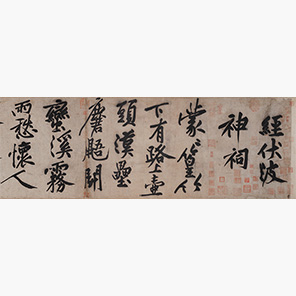 經伏波
神祠
蒙〻篁竹
下有路上壺
頭漢壘
麏鼯鬭
蠻溪霧
雨愁懷人